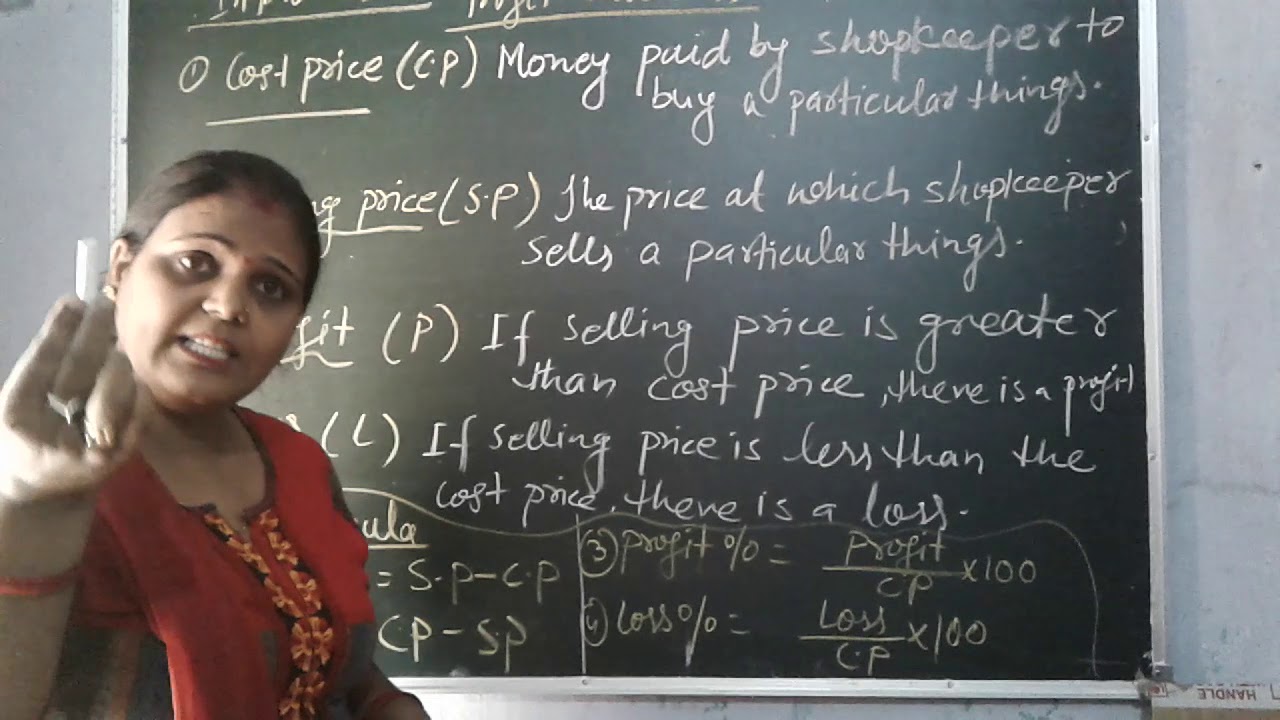 Profit
① Cost price (C.P) Money paid by shopkeeper to
buy a particular things.
price (S.P) The price at which shopkeeper
sells a particular things.
(P) If selling price is greater
than cost price, there is a profit
(L) If selling price is less than the
cost price, there is a loss.
= S.P-C.P
CP - SP
③ Profit % = Profit/C.P ×100
④ Loss% = Loss/C.P ×100
HANDLE